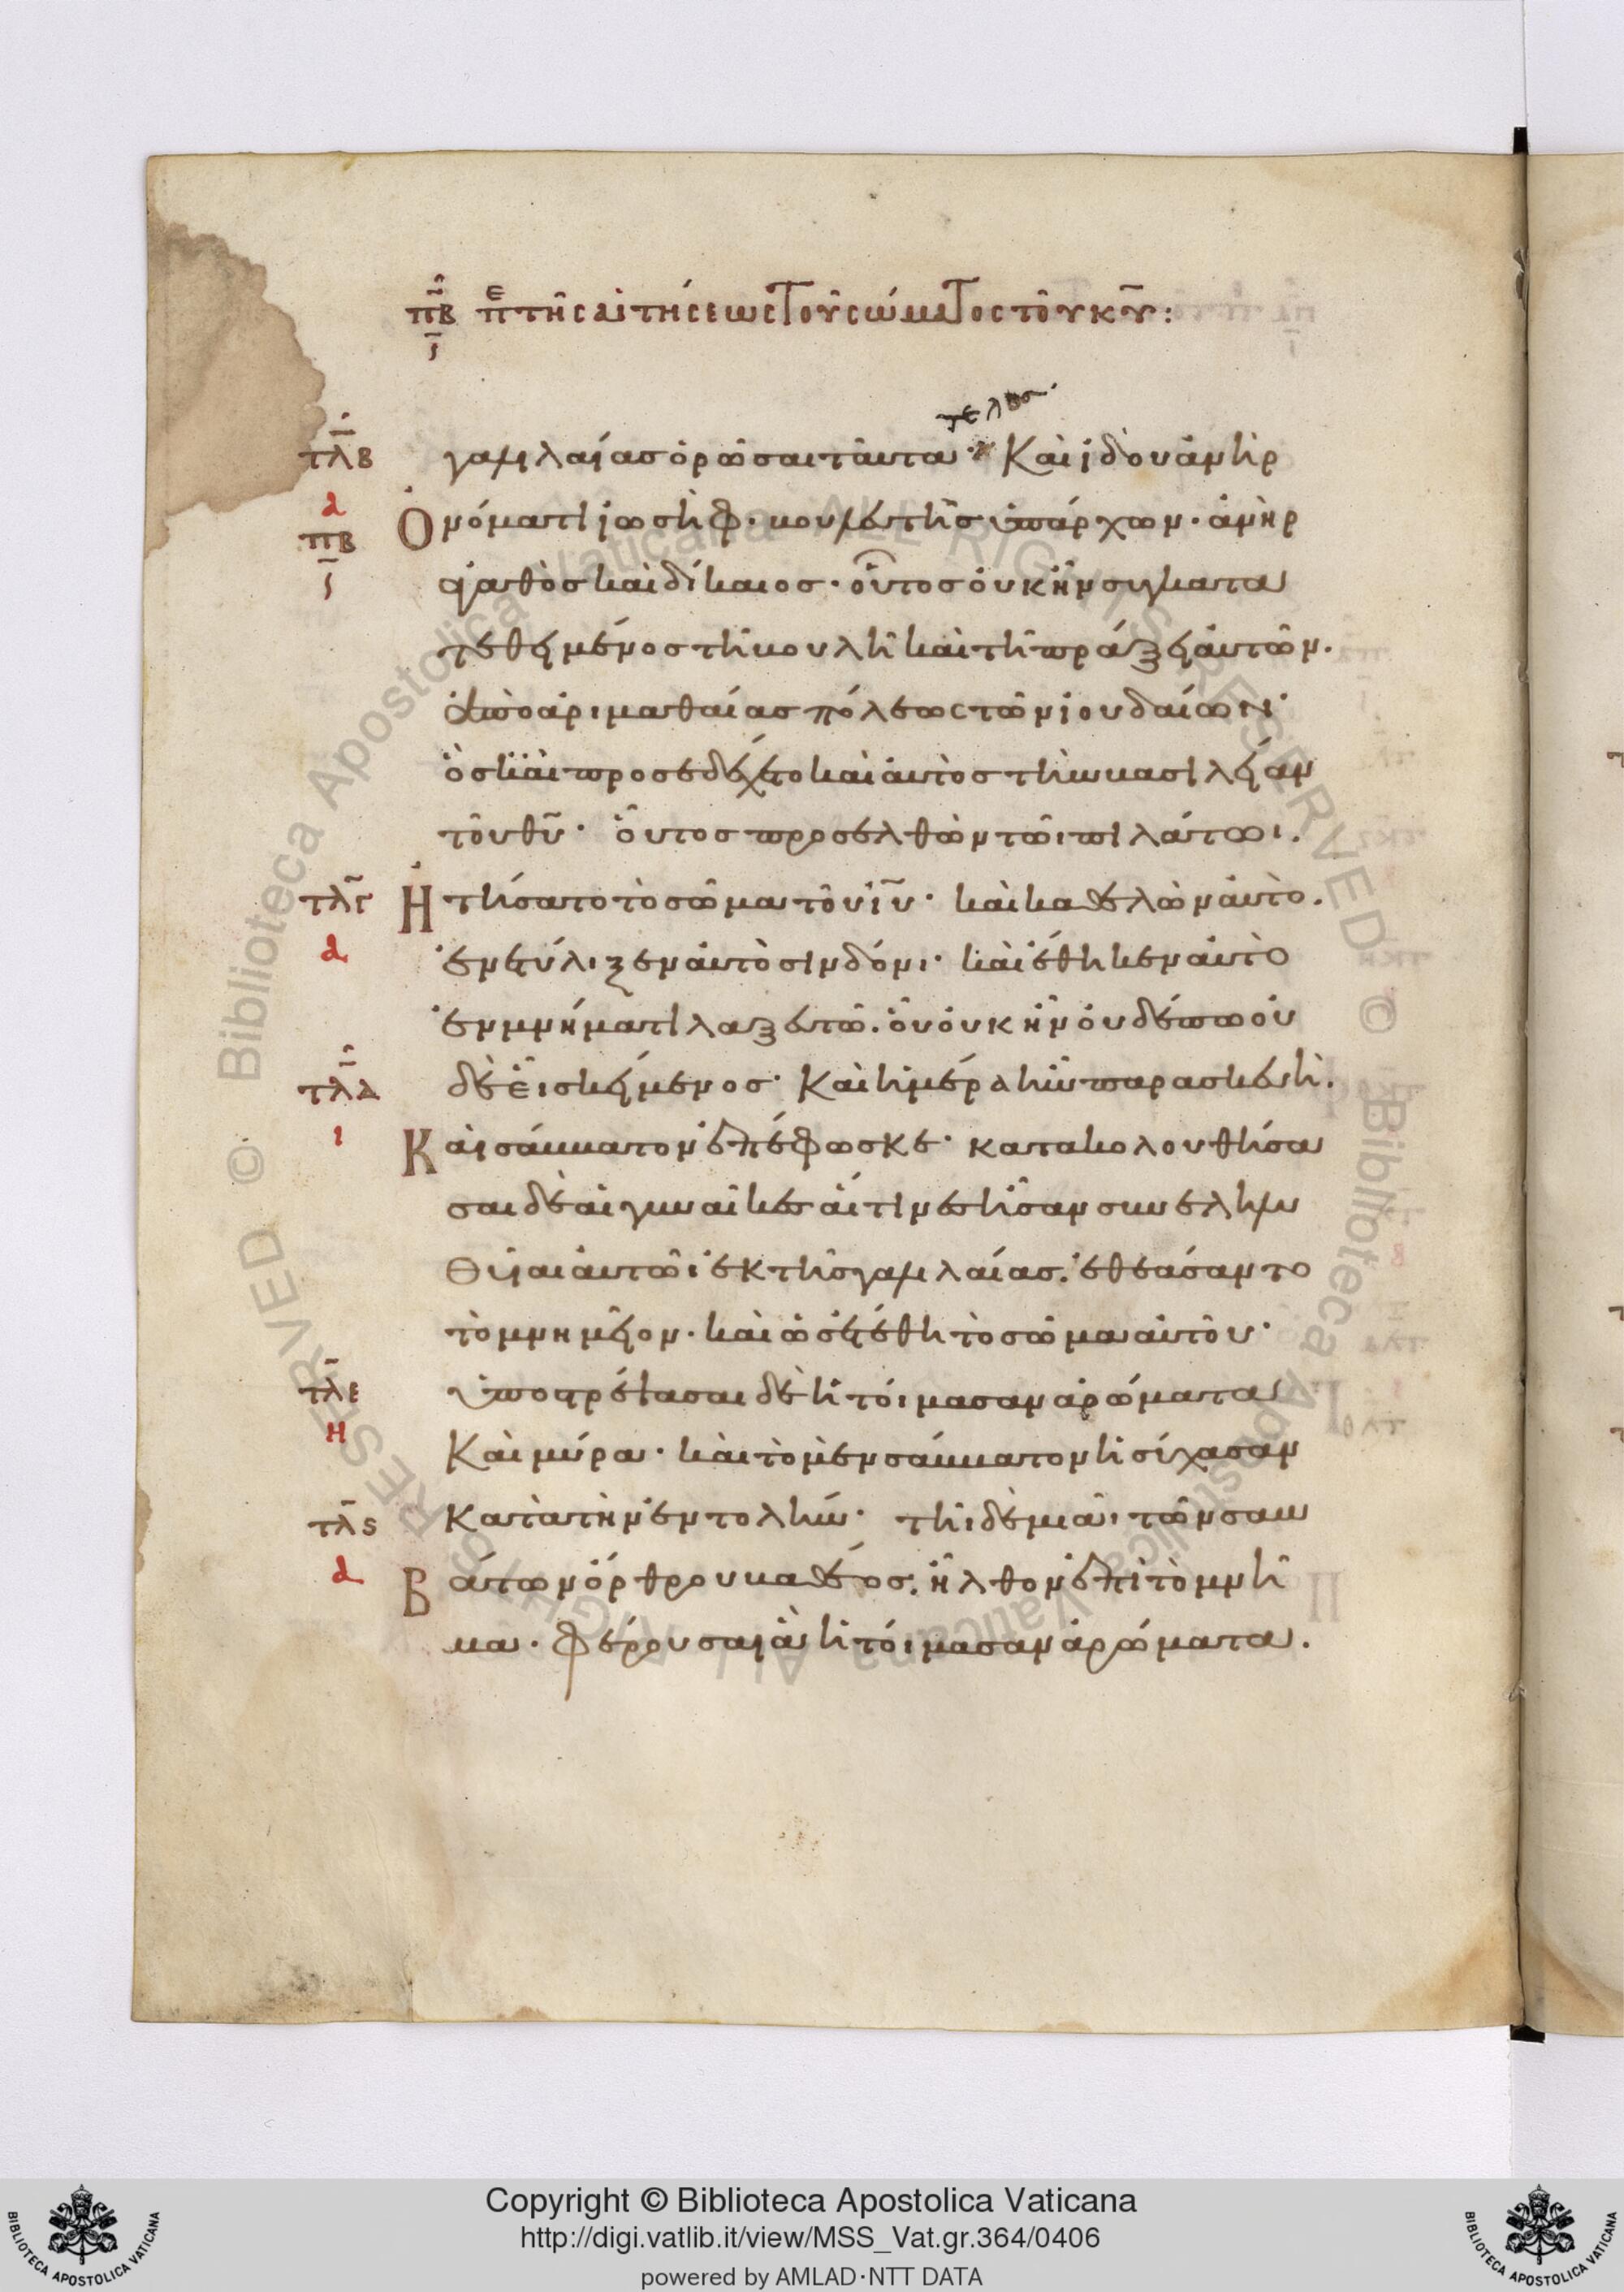 π̅β̅ πε τῆς αἰτήσεως τοῦ σώματος τοῦ κ̅υ̅:
ι̅
τελος
τ̅λ̅β̅ γαλιλαίας ὁρῶσαι ταῦτα· Καὶ ἰδοὺ ἀνὴρ
α Ὀνόματι ἰωσὴφ· βουλευτὴς ὑπάρχων· ἀνὴρ
π̅β̅
ι̅ ἀγαθὸς καὶ δίκαιος· οὗτος οὐκ ἦν συγκατα
τεθειμένος τῆ βουλῆ καὶ τῆ πράξει αὐτῶν.
ἀπὸ ἀριμαθαίας πόλεως τῶν ἰουδαίων·
ὃς καὶ προσεδέχετο καὶ αὐτὸς τὴν βασιλείαν
τοῦ θ̅υ̅· οὗτος προσελθὼν τῶι πιλάτωι.
τ̅λ̅γ̅ Ἠτήσατο τὸ σῶμα τοῦ ι̅υ̅· καὶ καθελὼν αὐτὸ.
α ἐνετύλιξεν αὐτὸ σινδόνι· καὶ ἔθηκεν αὐτὸ
ἐν μνήματι λαξευτῶ. οὗ οὐκ ἦν οὐδέπω οὐ
τ̅λ̅δ̅ δὲ εἷς κείμενος· Καὶ ἡμέρα ἦν παρασκευὴ.
ι Καὶ σάββατον ἐπέφωσκε· κατακολουθήσα
σαι δὲ αἱ γυναῖκες αἵτινες ἦσαν συνεληλυ
θυῖαι αὐτῶι ἐκ τῆς γαλιλαίας. ἐθεάσαντο
τὸ μνημεῖον· καὶ ὡς ἐτέθη τὸ σῶμα αὐτοῦ·
τ̅λ̅ε̅ ὑποστρέψασαι δὲ ἡτοίμασαν ἀρώματα
η Καὶ μύρα· καὶ τὸ μὲν σάββατον ἡσύχασαν
τ̅λ̅ς̅ Κατὰ τὴν ἐντολήν· τῆι δὲ μιᾶι τῶν σαβ
α Βάτων ὄρθρου βαθέος· ἦλθον ἐπὶ τὸ μνῆ
μα· φέρουσαι ἃ ἡτοίμασαν ἀρώματα.
© Biblioteca Apostolica Vaticana ALL RIGHTS RESERVED © Biblioteca Apostolica Vaticana ALL RIGHTS RESERVED
Copyright © Biblioteca Apostolica Vaticana
http://digi.vatlib.it/view/MSS_Vat.gr.364/0406
powered by AMLAD·NTT DATA
BIBLIOTECA APOSTOLICA VATICANA
BIBLIOTECA APOSTOLICA VATICANA